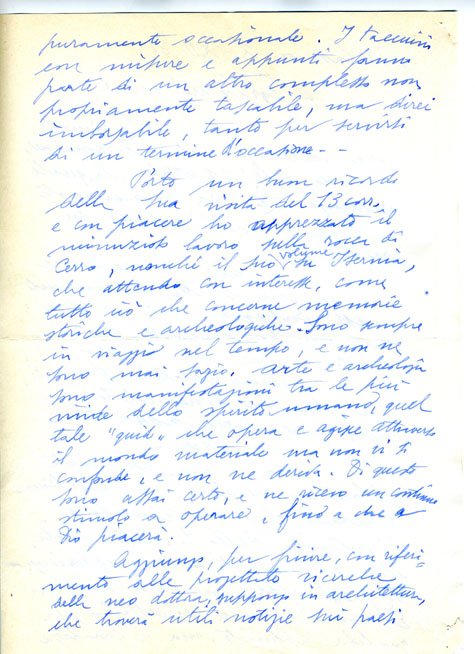 puramente occasionale. I taccuini
con misure e appunti fanno
parte di un altro complesso non
propriamente tascabile, ma direi
imborsabile, tanto per servirsi
di un termine d'occasione --
Porto un buon ricordo
della sua visita del 13 corr.
e con piacere ho apprezzato il
minuzioso lavoro sulla rocca di
Cerro, nonché il suo volume su Isernia,
che attendo con interesse, come
tutto ciò che concerne memorie
storiche e archeologiche. Sono sempre
in viaggio nel tempo, e non ne
sono mai sazio. Arte e archeologia
sono manifestazioni tra le più
vive dello spirito umano, quel
tale "quid" che opera e agisce attraverso
il mondo materiale ma non vi si
confonde, e non ne deriva. Di questo
sono assai certo, e ne ricevo un continuo
stimolo a operare, fino a che a
Dio piacerà.
Aggiungo, per finire, con riferi-
mento alle progettate ricerche
della neo dottora, suppongo in architettura,
che troverà utili notizie sui paesi